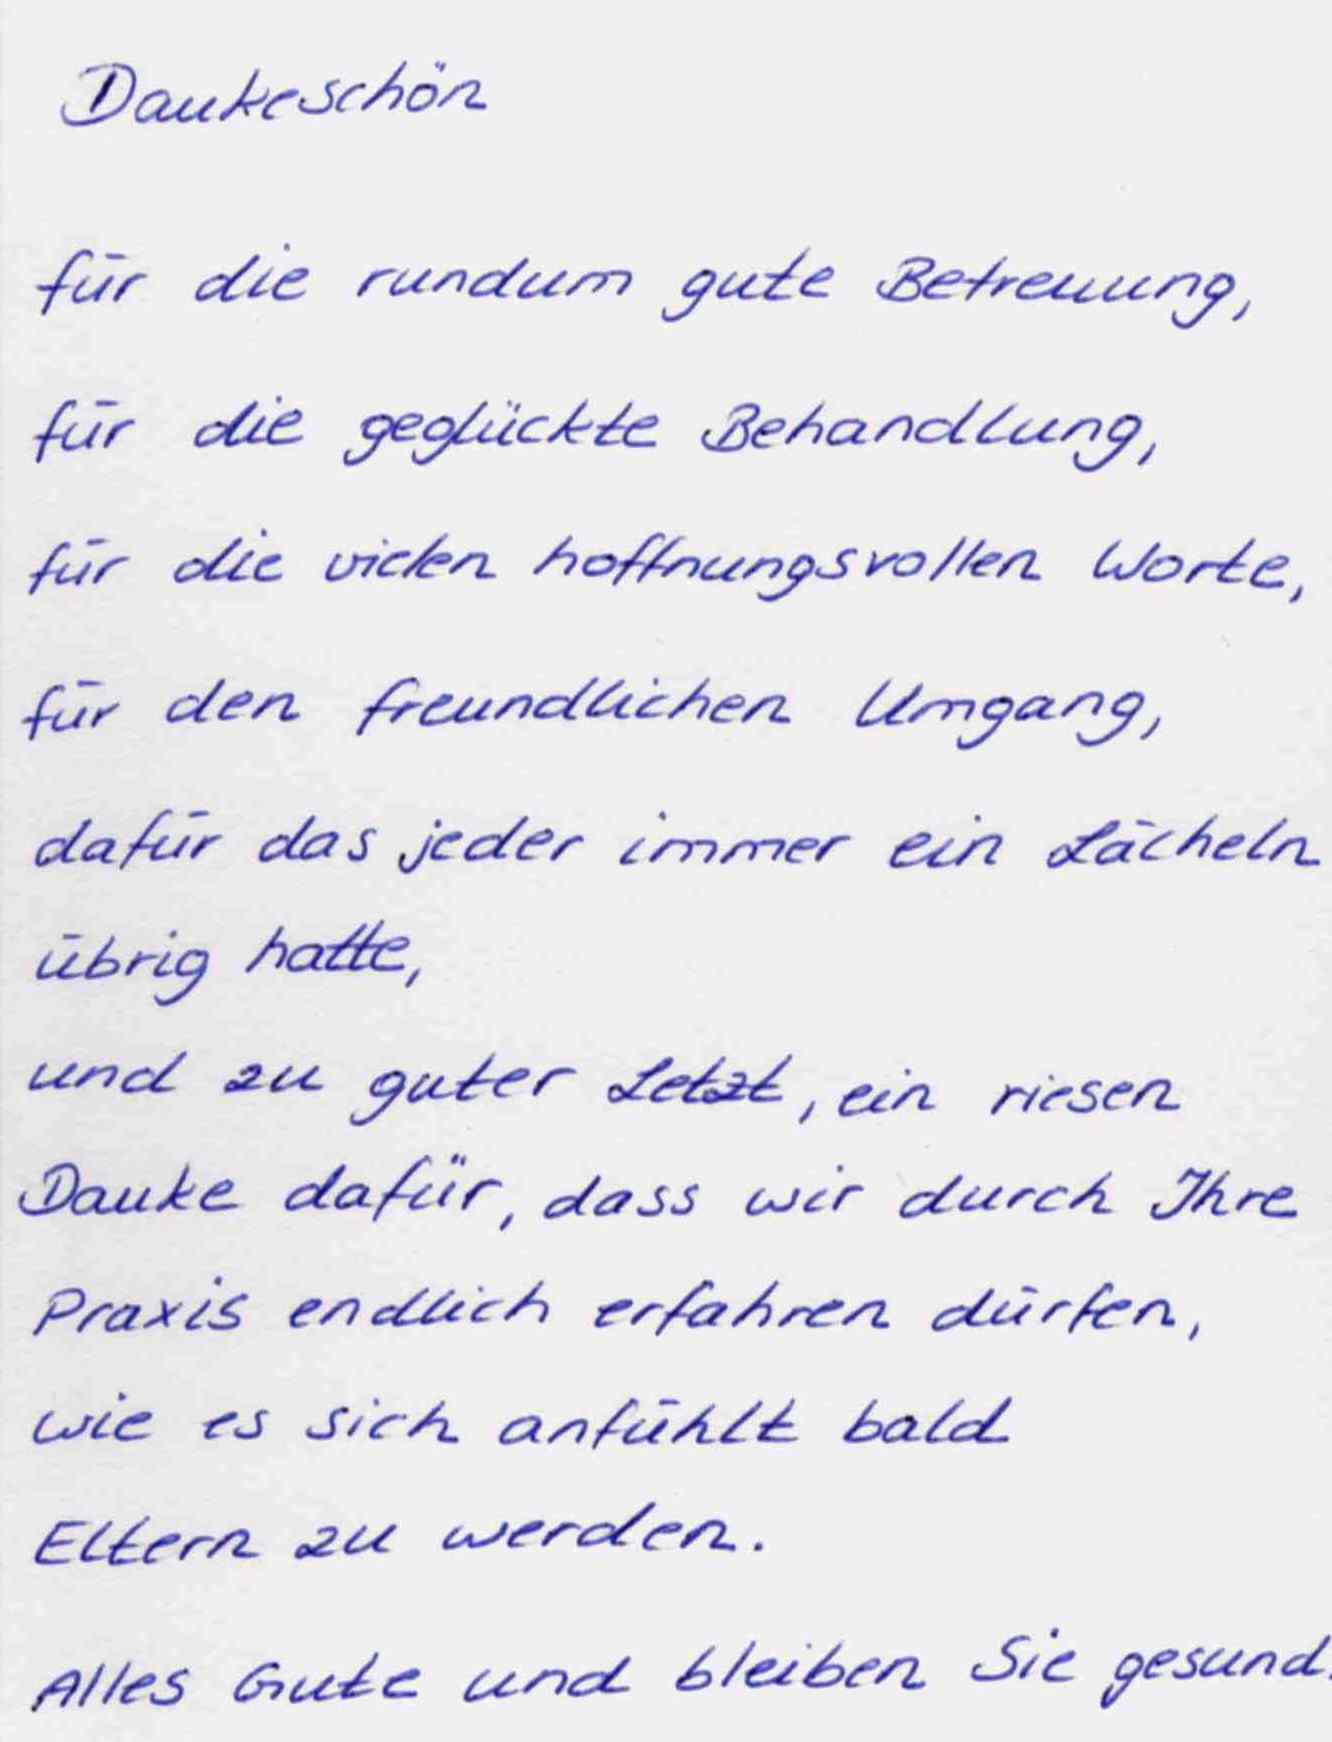 Dankeschön
für die rundum gute Betreuung,
für die geglückte Behandlung,
für die vielen hoffnungsvollen Worte,
für den freundlichen Umgang,
dafür das jeder immer ein Lächeln
übrig hatte,
und zu guter Letzt, ein riesen
Danke dafür, dass wir durch Ihre
Praxis endlich erfahren dürfen,
wie es sich anfühlt bald
Eltern zu werden.
Alles Gute und bleiben Sie gesund.